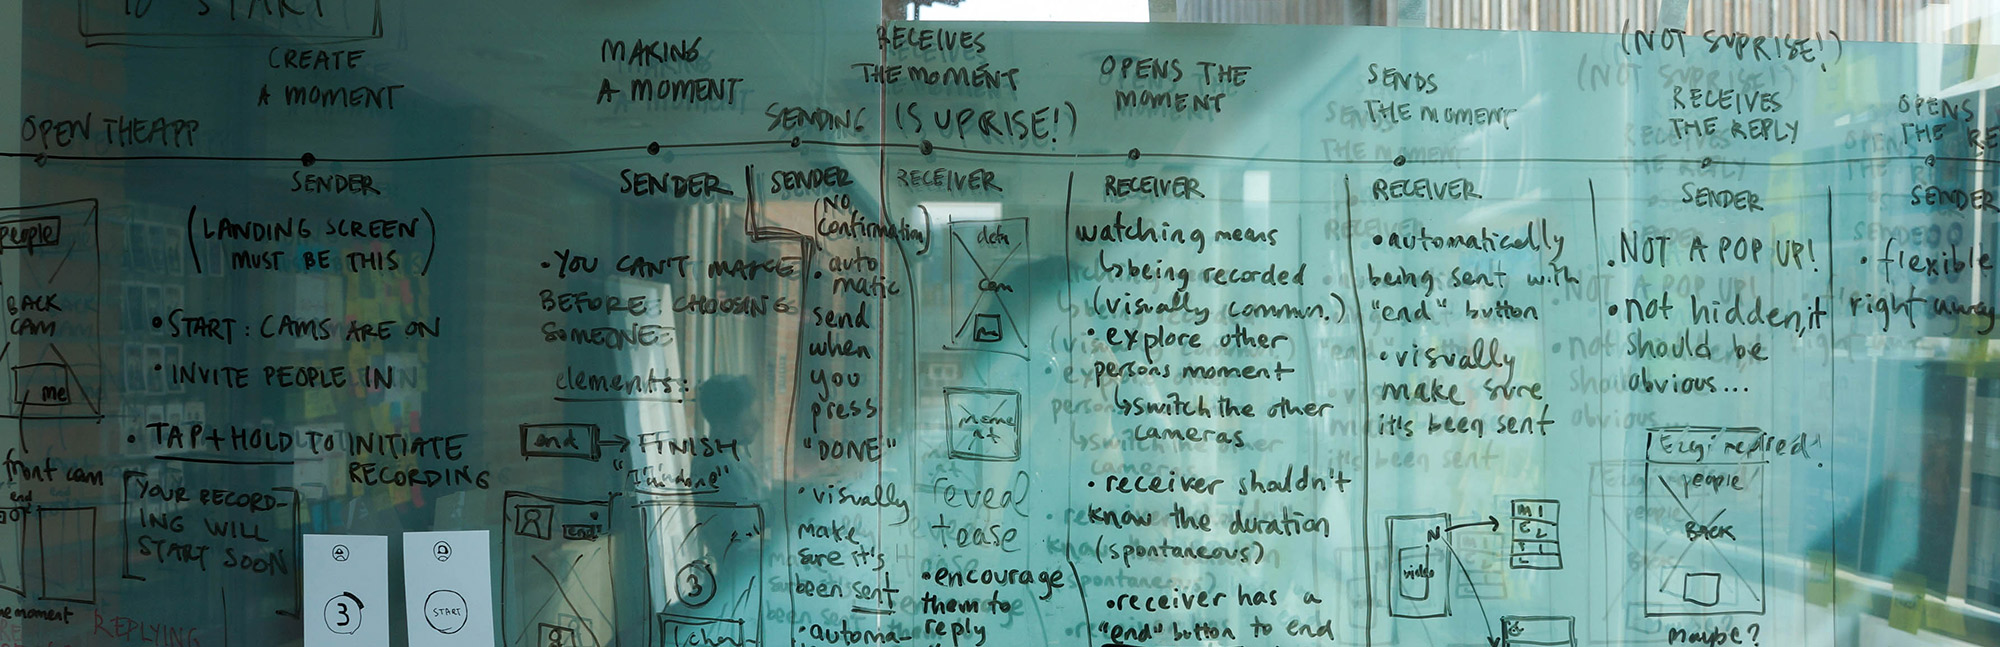 TO START
CREATE
A MOMENT
MAKING
A MOMENT
RECEIVES
THE MOMENT
(SUPRISE!)
OPENS THE
MOMENT
SENDS
THE MOMENT
(NOT SUPRISE!)
RECEIVES
THE REPLY
OPENS
THE RE
OPEN THE APP
SENDING
SENDER
SENDER
SENDER
RECEIVER
RECEIVER
RECEIVER
SENDER
SENDER
people
BACK
CAM
me
front cam
end
me moment
REPLYING
(LANDING SCREEN)
MUST BE THIS
• START: CAMS ARE ON
• INVITE PEOPLE IN
• TAP + HOLD TO INITIATE
RECORDING
YOUR RECORD-
ING WILL
START SOON
3
START
• YOU CAN'T MAKE
BEFORE CHOOSING
SOMEONE
elements:
end → FINISH
"I'm done"
end
3
(NO
confirmation)
• auto
matic
send
when
you
press
"DONE"
• visually
make
sure it's
been sent
• automa-
cam
reveal
tease
• encourage
them to
reply
watching means
↳ being recorded
(visually commun.)
• explore other
persons moment
↳ switch the other
cameras
• receiver shouldn't
know the duration
(spontaneous)
• receiver has a
"end" button to end
• automatically
being sent with
"end" button
• visually
make sure
it's been sent
N
video
• NOT A POP UP!
• not hidden, it
should be
obvious...
people
BACK
maybe?
• flexible
right away